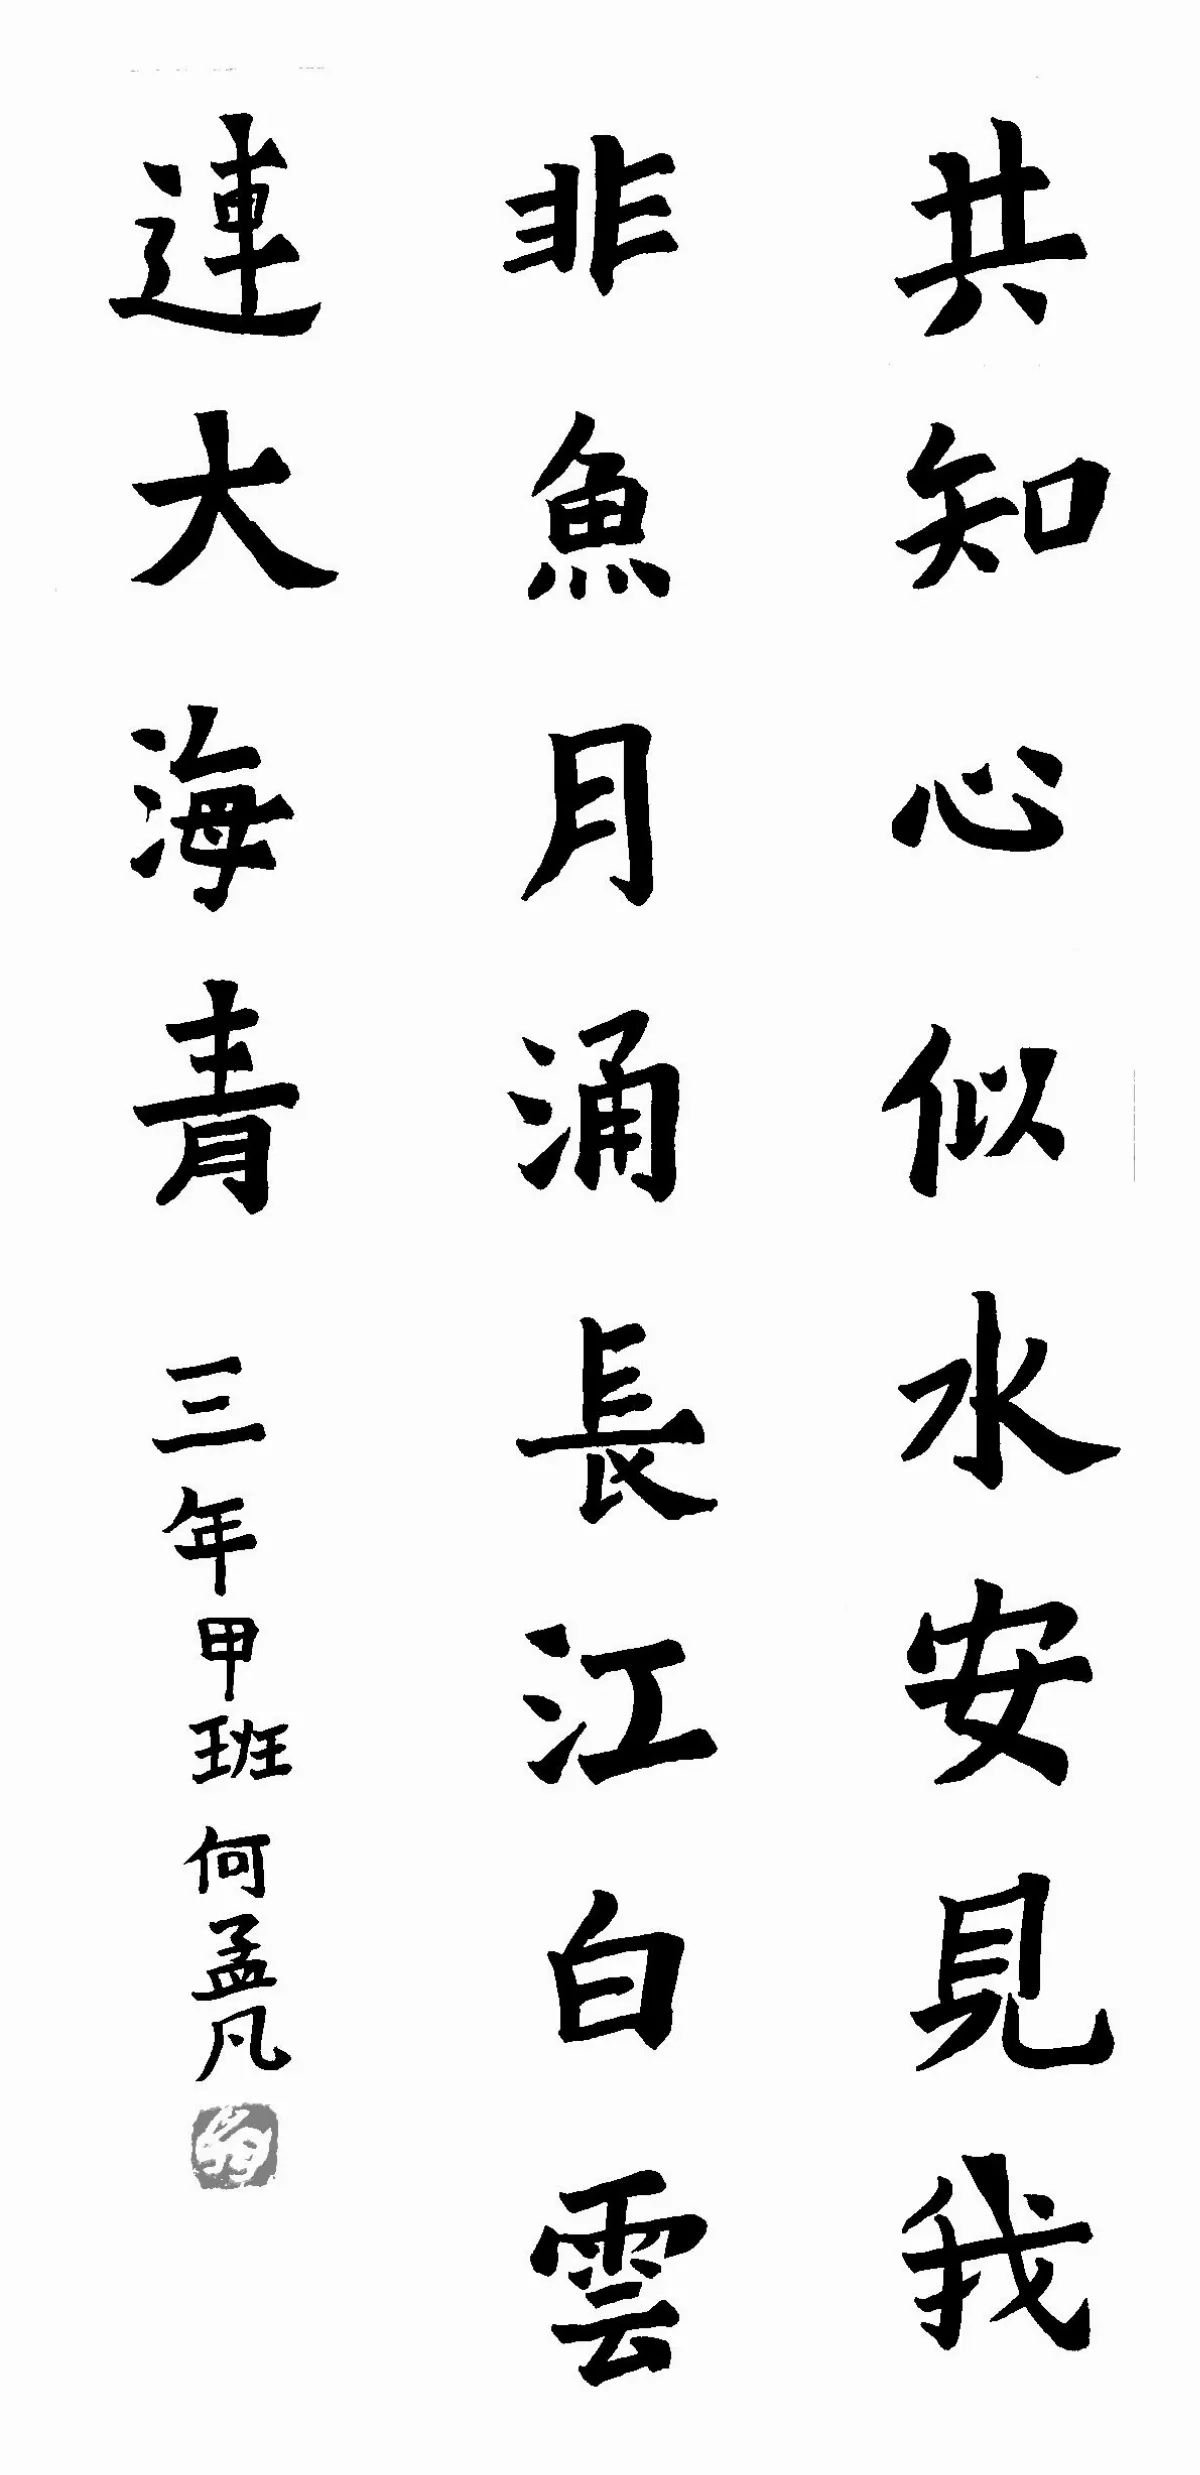 共知心似水安見我
非魚月涌長江白雲
連大海青
三年甲班何孟凡